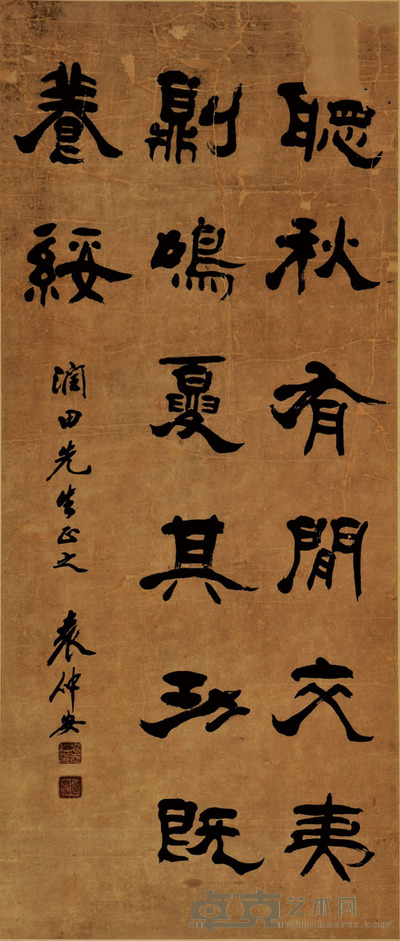 聰秋有閒交夷
鼎鳴夏其功既
養綏
潤田先生正之
袁仲安
卓克艺术网